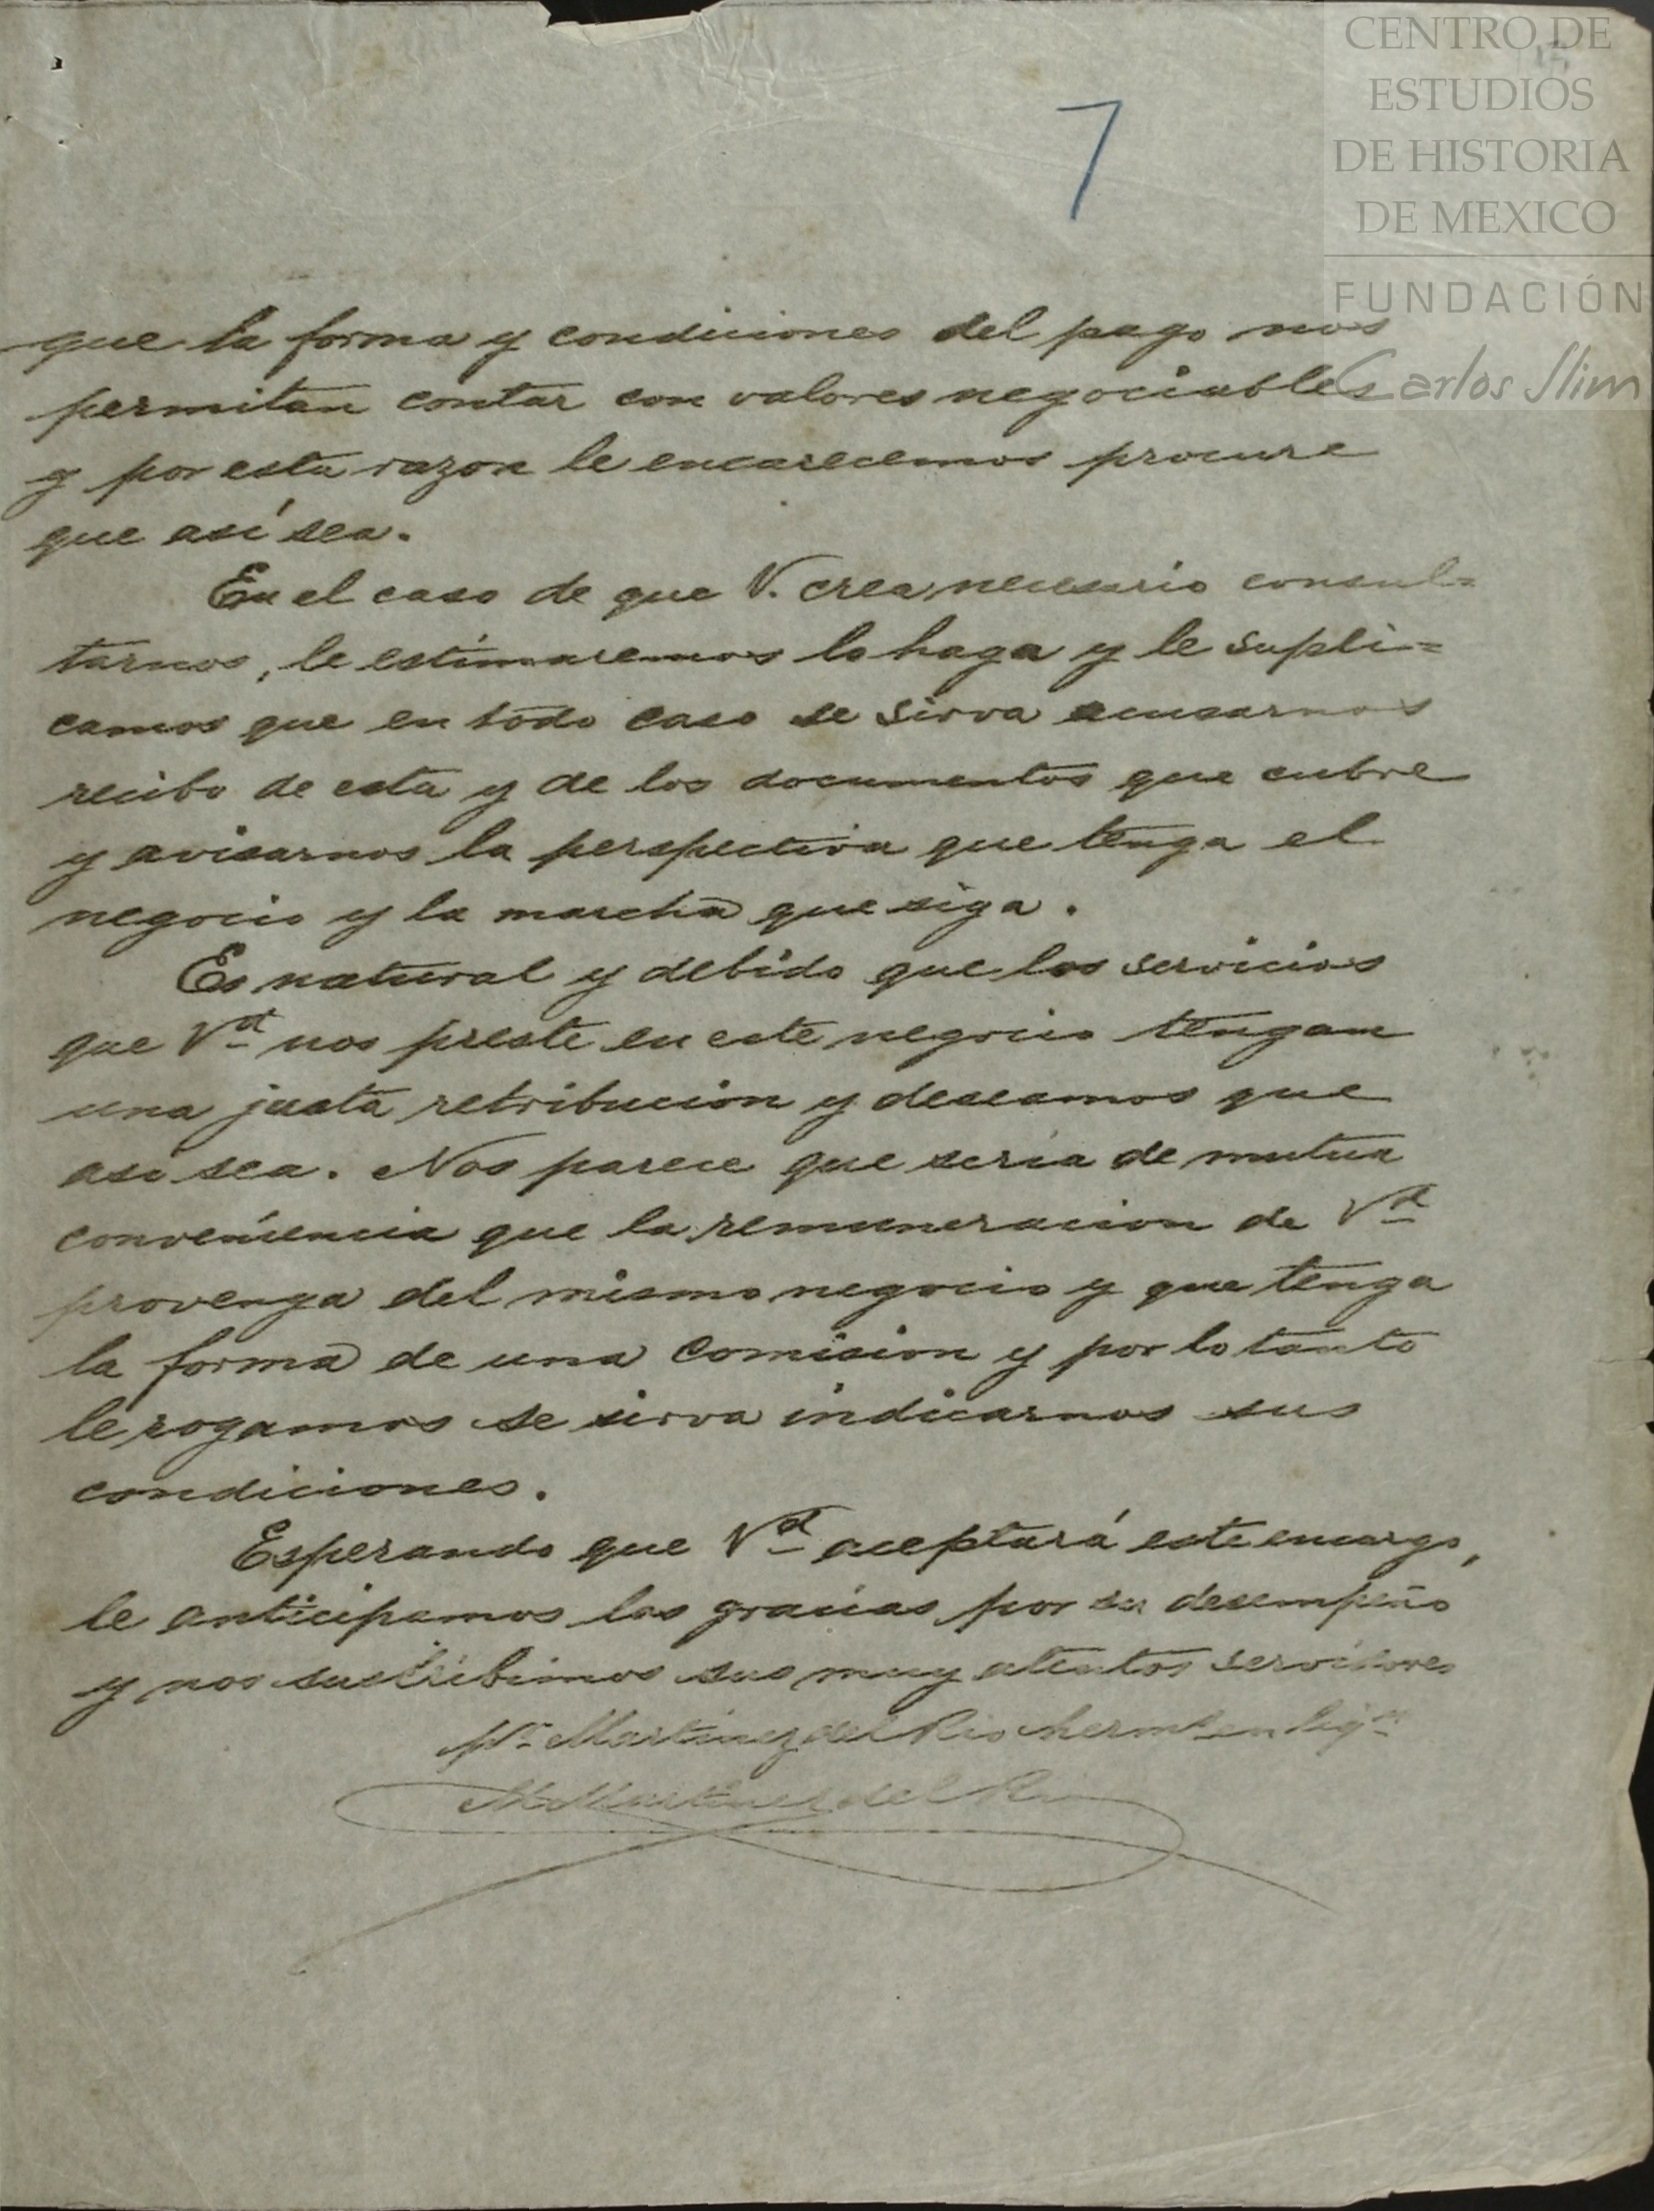 CENTRO DE
ESTUDIOS
DE HISTORIA
DE MEXICO
FUNDACIÓN
Carlos Slim
7
que la forma y condiciones del pago nos
permitan contar con valores negociables
y por esta razon le encarecemos procure
que así sea.
En el caso de que V. crea necesario consul=
tarnos, le estimaremos lo haga y le supli=
camos que en todo caso se sirva acusarnos
recibo de esta y de los documentos que cubre
y avisarnos la perspectiva que tenga el
negocio y la marcha que siga.
Es natural y debido que los servicios
que Vd nos preste en este negocio tengan
una justa retribucion y deseamos que
asi sea. Nos parece que seria de mutua
conveniencia que la remuneracion de Vd
provenga del mismo negocio y que tenga
la forma de una comision y por lo tanto
le rogamos se sirva indicarnos sus
condiciones.
Esperando que Vd aceptará este encargo,
le anticipamos las gracias por su desempeño
y nos suscribimos sus muy atentos servidores
pr. Martinez del Rio herms en liqn
M. Martinez del Rio